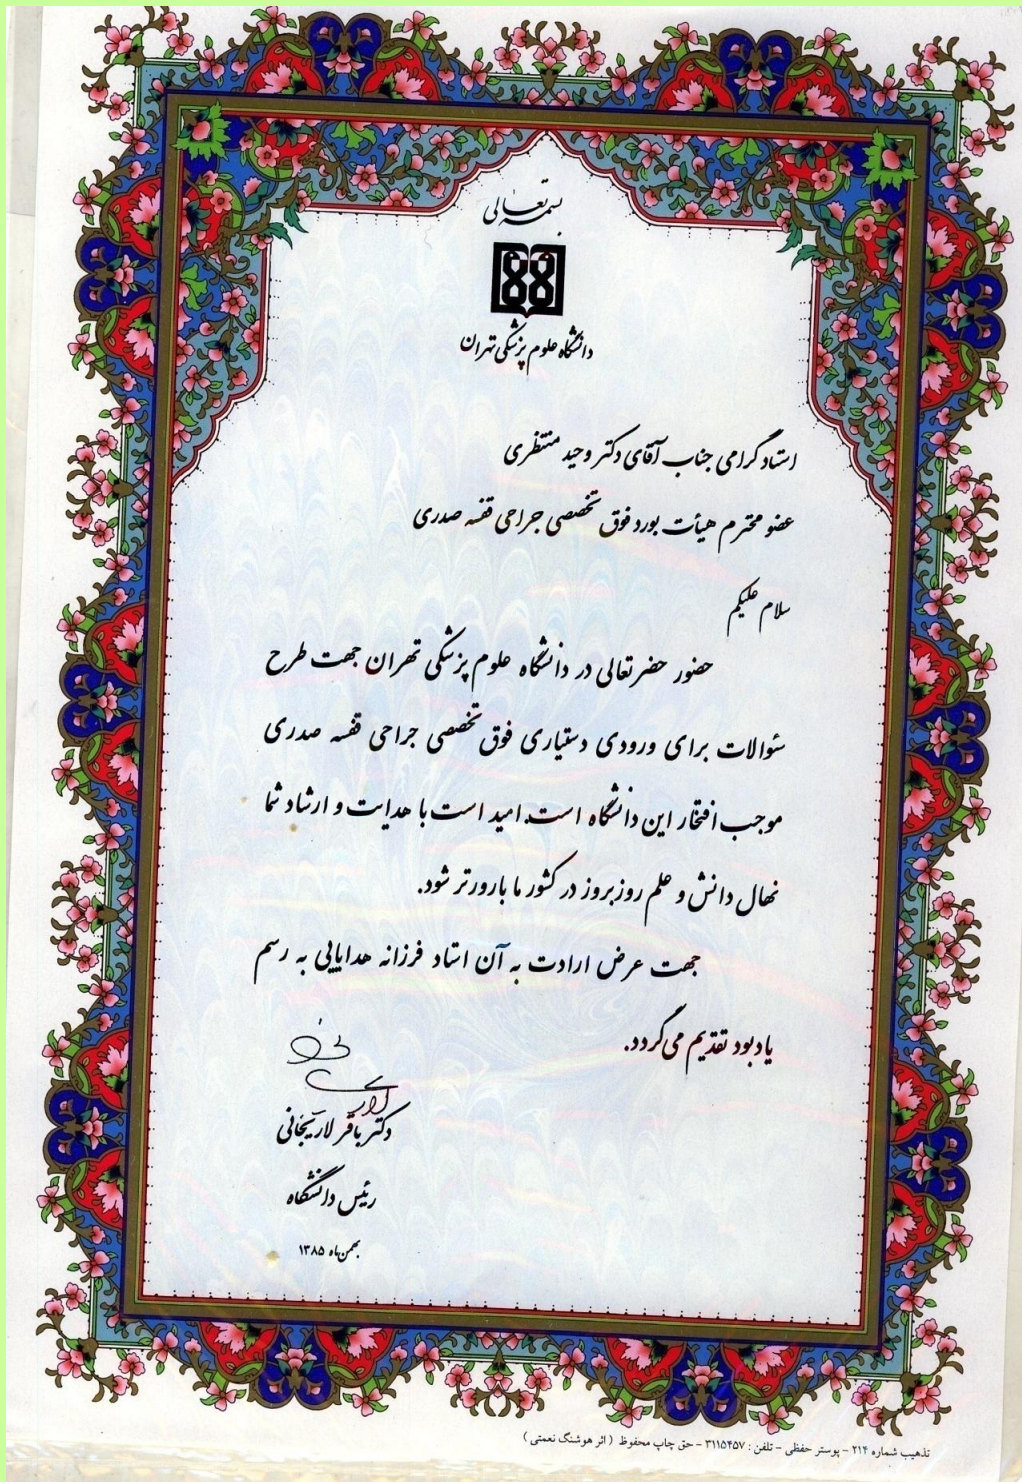 بسمه تعالی
دانشگاه علوم پزشکی تهران
استاد گرامی جناب آقای دکتر وحید منتظری
عضو محترم هیأت بورد فوق تخصصی جراحی قفسه صدری
سلام علیکم
حضور حضرتعالی در دانشگاه علوم پزشکی تهران جهت طرح
سئوالات برای ورودی دستیاری فوق تخصصی جراحی قفسه صدری
موجب افتخار این دانشگاه است. امید است با هدایت و ارشاد شما
نهال دانش و علم روزبروز در کشور ما بارورتر شود.
جهت عرض ارادت به آن استاد فرزانه هدایایی به رسم
یادبود تقدیم می‌گردد.
دکتر باقر لاریجانی
رئیس دانشگاه
بهمن ماه ۱۳۸۵
تذهیب شماره ۲۱۴ - پوستر حفظی - تلفن : ۳۱۱۵۴۵۷ - حق چاپ محفوظ ( اثر هوشنگ نعمتی )